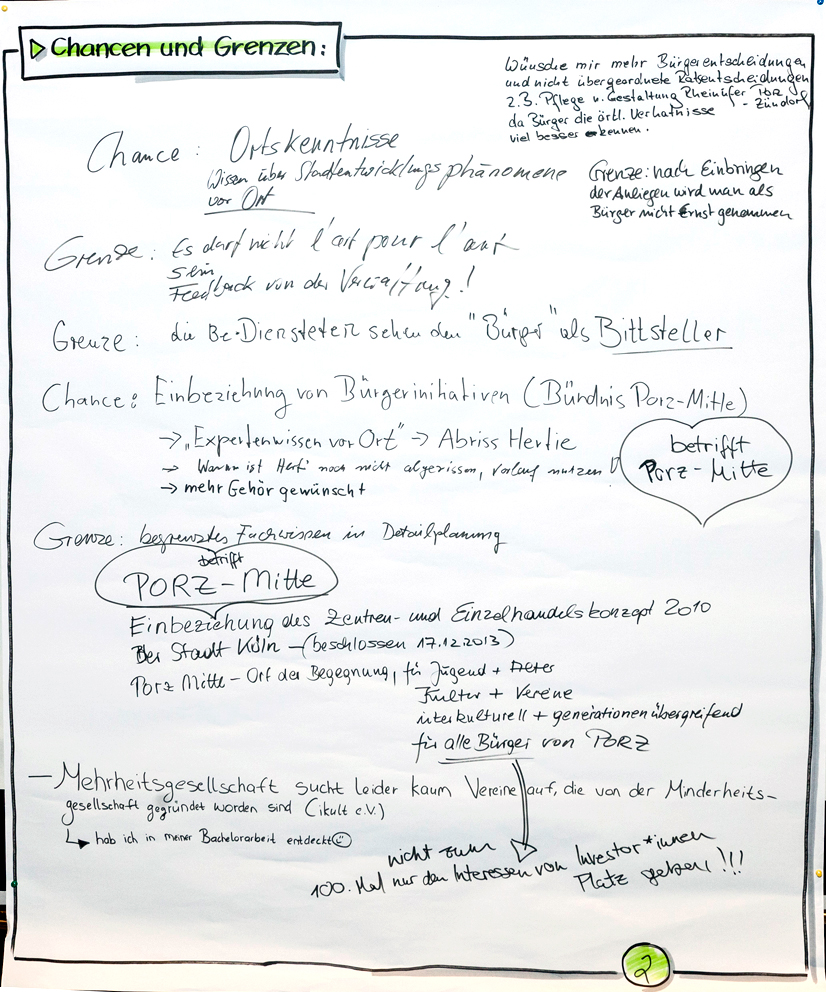 Chancen und Grenzen:
Wünsche mir mehr Bürgerentscheidungen
und nicht übergeordnete Ratsentscheidungen
z.B. Pflege u. Gestaltung Rheinufer Porz
- Zündorf
da Bürger die örtl. Verhältnisse
viel besser kennen.
Chance: Ortskenntnisse
Wissen über Stadtentwicklungsphänomene
vor Ort
Grenze: nach Einbringen
der Anliegen wird man als
Bürger nicht Ernst genommen
Grenze: Es darf nicht l'art pour l'art
sein
Feedback von der Verwaltung!
Grenze: die Be-Diensteten sehen den "Bürger" als Bittsteller
Chance: Einbeziehung von Bürgerinitiativen (Bündnis Porz-Mitte)
→ „Expertenwissen vor Ort" → Abriss Hertie
→ Warum ist Herti noch nicht abgerissen, Vorlauf nutzen!
→ mehr Gehör gewünscht
betrifft
Porz-Mitte
Grenze: begrenztes Fachwissen in Detailplanung
betrifft
PORZ-Mitte
Einbeziehung des Zentren- und Einzelhandelskonzept 2010
Der Stadt Köln - (beschlossen 17.12.2013)
Porz Mitte - Ort der Begegnung, für Jugend + Alter
Kultur + Vereine
interkulturell + generationenübergreifend
für alle Bürger von PORZ
- Mehrheitsgesellschaft sucht leider kaum Vereine auf, die von der Minderheits-
gesellschaft gegründet worden sind (ikult e.V.)
↳ hab ich in meiner Bachelorarbeit entdeckt ☺
nicht zum
100. Mal nur den Interessen von Investor*innen
Platz geben!!!
2